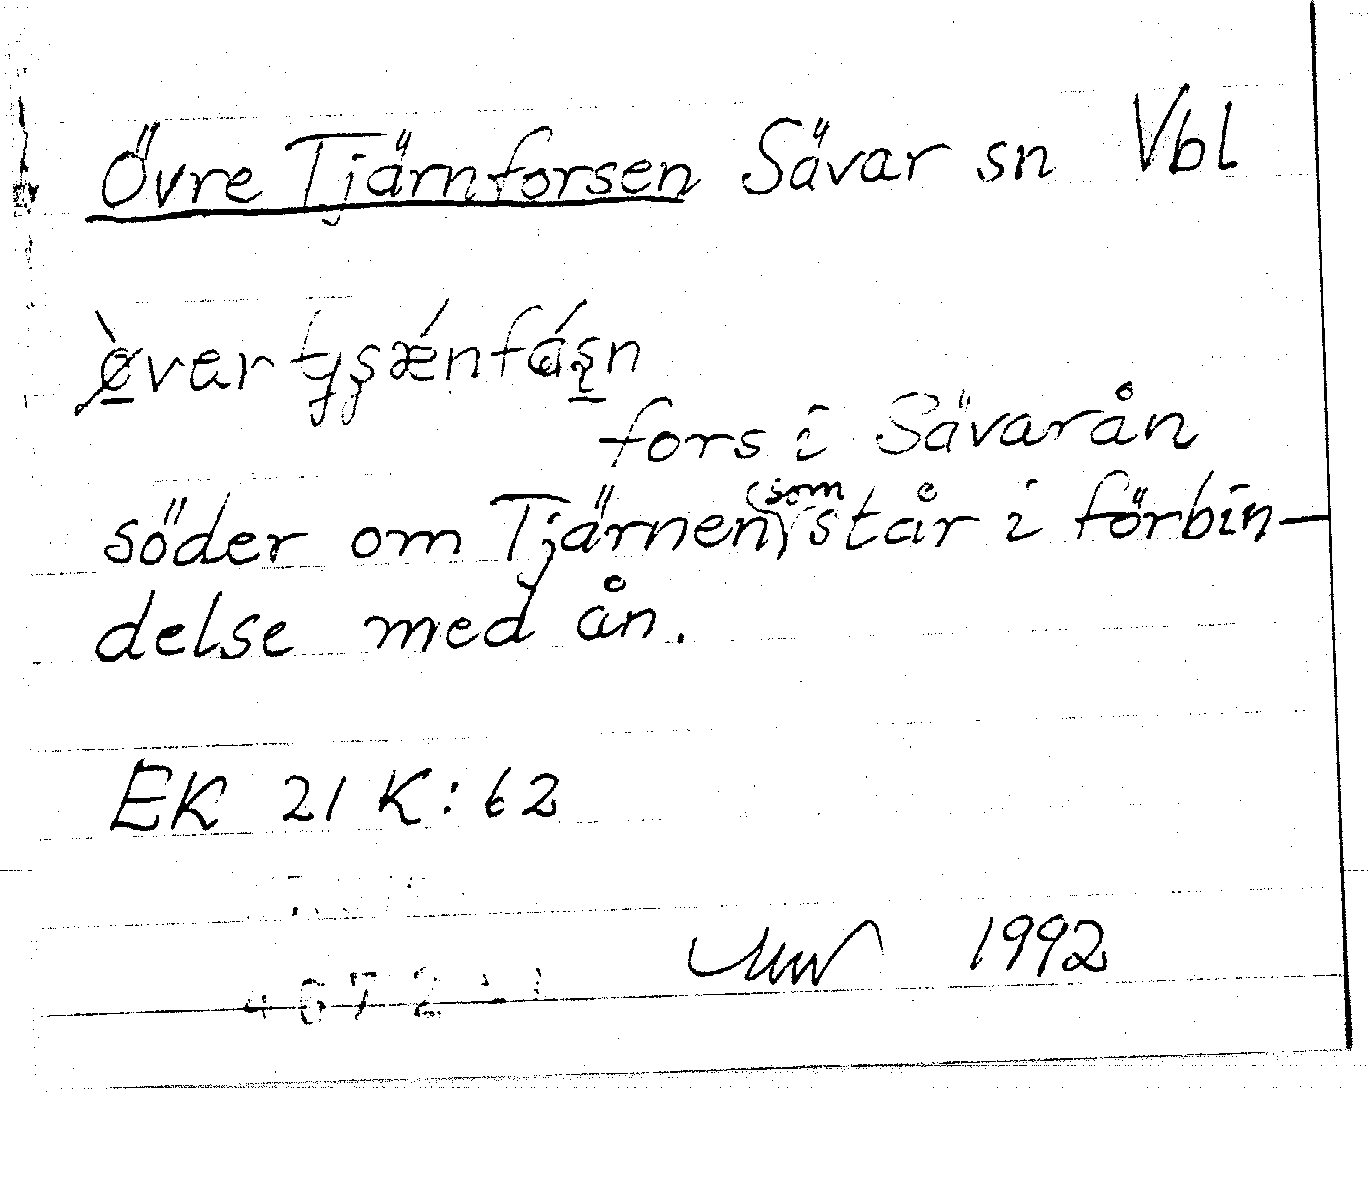 Övre Tjärnforsen Sävar sn Vbl
fors i Sävarån
söder om Tjärnen (som) står i förbin-
delse med ån.
EK 21 K: 62
1992